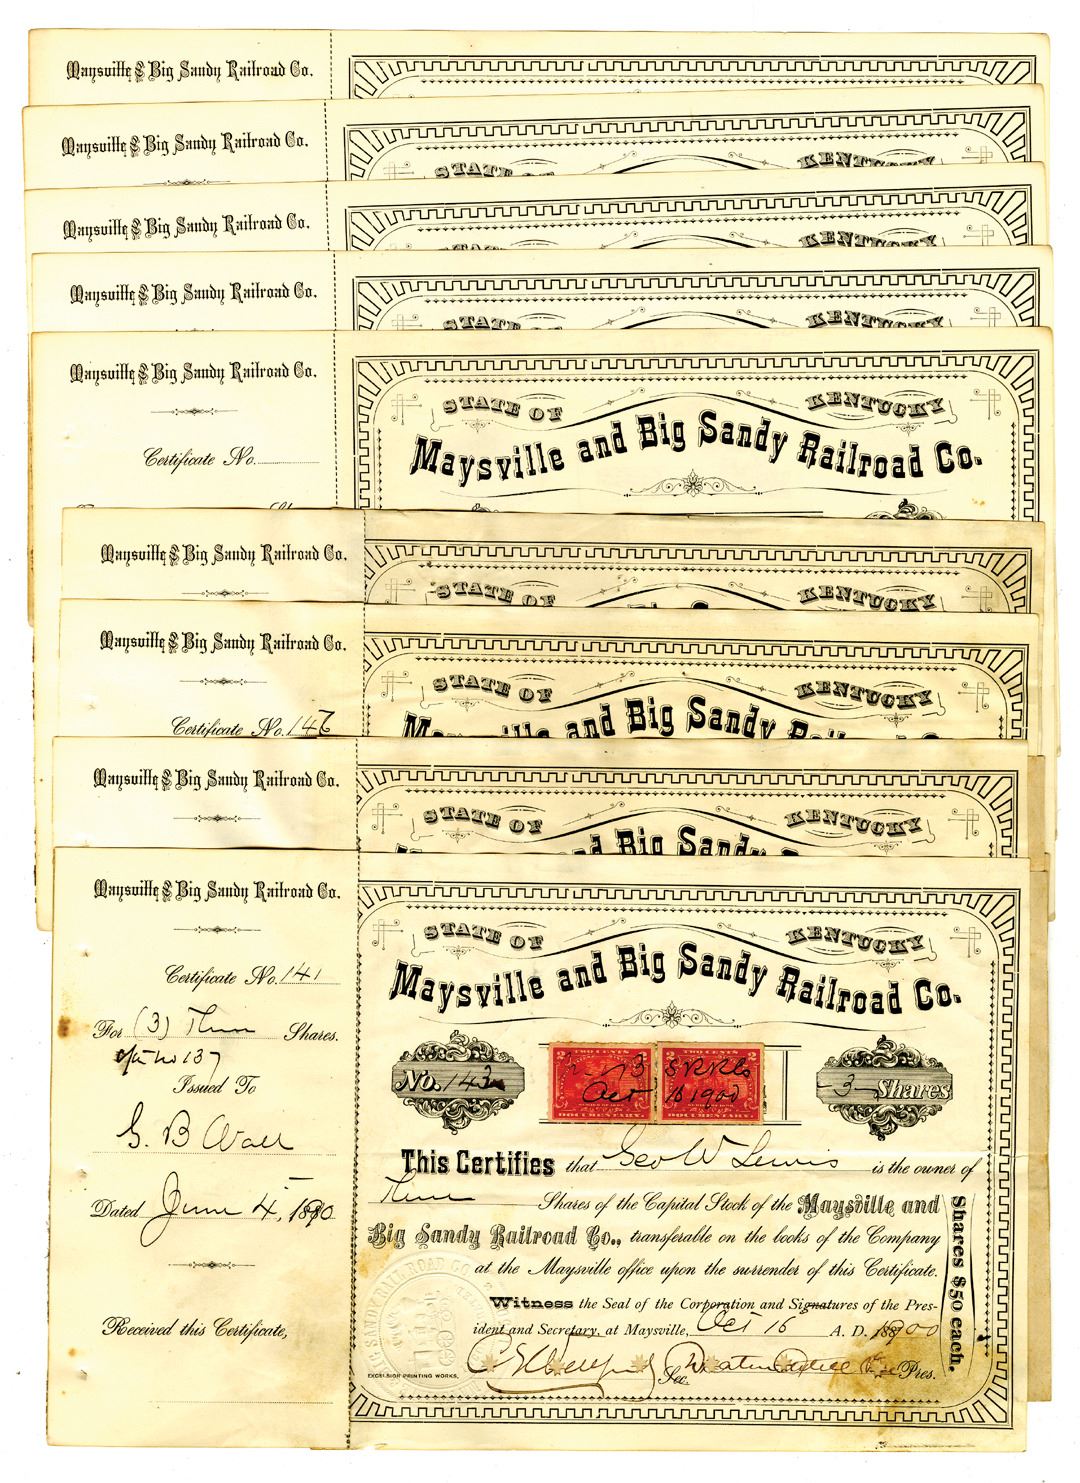 Maysville & Big Sandy Railroad Co.
Maysville & Big Sandy Railroad Co.
STATE OF KENTUCKY
Maysville & Big Sandy Railroad Co.
STATE KENTUCKY
Maysville & Big Sandy Railroad Co.
STATE OF KENTUCKY
Maysville & Big Sandy Railroad Co.
Certificate No.
STATE OF KENTUCKY
Maysville and Big Sandy Railroad Co.
Maysville & Big Sandy Railroad Co.
STATE OF KENTUCKY
Maysville & Big Sandy Railroad Co.
Certificate No. 146
STATE OF KENTUCKY
Maysville and Big Sandy Railroad Co.
Maysville & Big Sandy Railroad Co.
STATE OF KENTUCKY
and Big Sandy
Maysville & Big Sandy Railroad Co.
Certificate No. 141
For (3) Three Shares.
137
Issued To
G. B Wall
Dated June 4, 1890
Received this Certificate,
STATE OF KENTUCKY
Maysville and Big Sandy Railroad Co.
No. 143
TWO CENTS TWO CENTS
Oct 16 1900
DOCUMENTARY DOCUMENTARY
-3- Shares
This Certifies that Geo W Lewis is the owner of
Three Shares of the Capital Stock of the Maysville and
Big Sandy Railroad Co., transferable on the books of the Company
at the Maysville office upon the surrender of this Certificate.
Witness the Seal of the Corporation and Signatures of the Pres-
ident and Secretary, at Maysville, Oct 16 A. D. 1900
Sec. Pres.
EXCELSIOR PRINTING WORKS,
Shares $50 each.